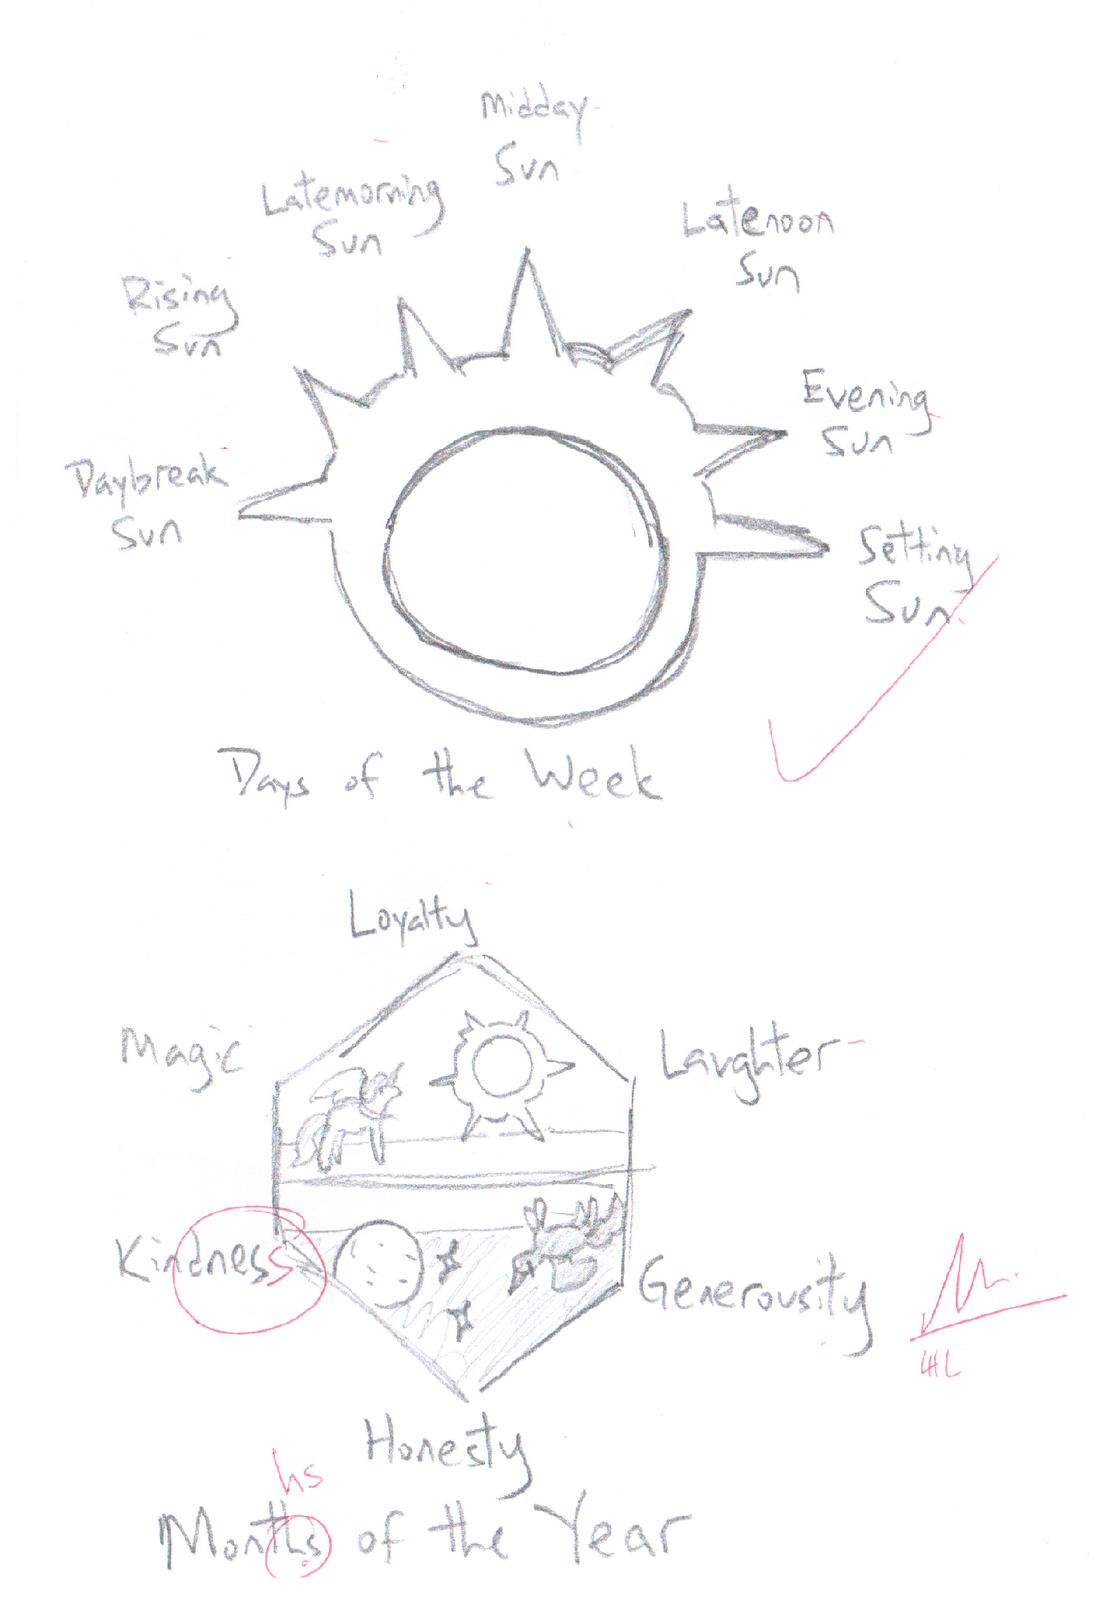 Midday
Sun
Latemorning
Sun
Latenoon
Sun
Rising
Sun
Evening
Sun
Daybreak
Sun
Setting
Sun
Days of the Week
Loyalty
Magic
Laughter
Kindness
Generousity
Honesty
hs
Months of the Year